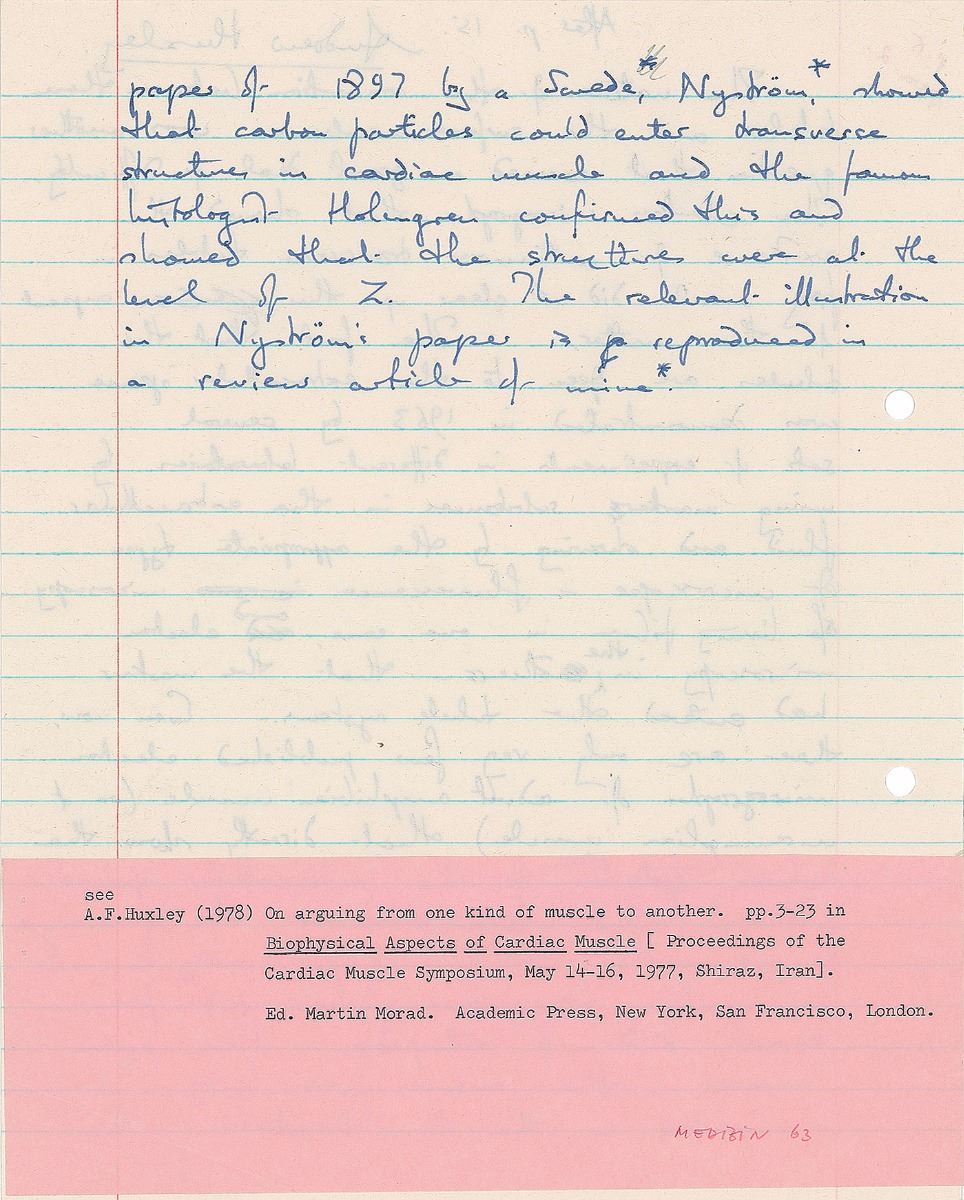 paper of 1897 by a Swede, Nyström,* showed
that carbon particles could enter transverse
structures in cardiac muscle and the famous
histologist Holmgren confirmed this and
showed that the structures were at the
level of Z. The relevant illustration
in Nyström's paper is reproduced in
a review article of mine*.
see
A.F.Huxley (1978) On arguing from one kind of muscle to another. pp.3-23 in
Biophysical Aspects of Cardiac Muscle [ Proceedings of the
Cardiac Muscle Symposium, May 14-16, 1977, Shiraz, Iran].
Ed. Martin Morad. Academic Press, New York, San Francisco, London.
MEDIZIN 63